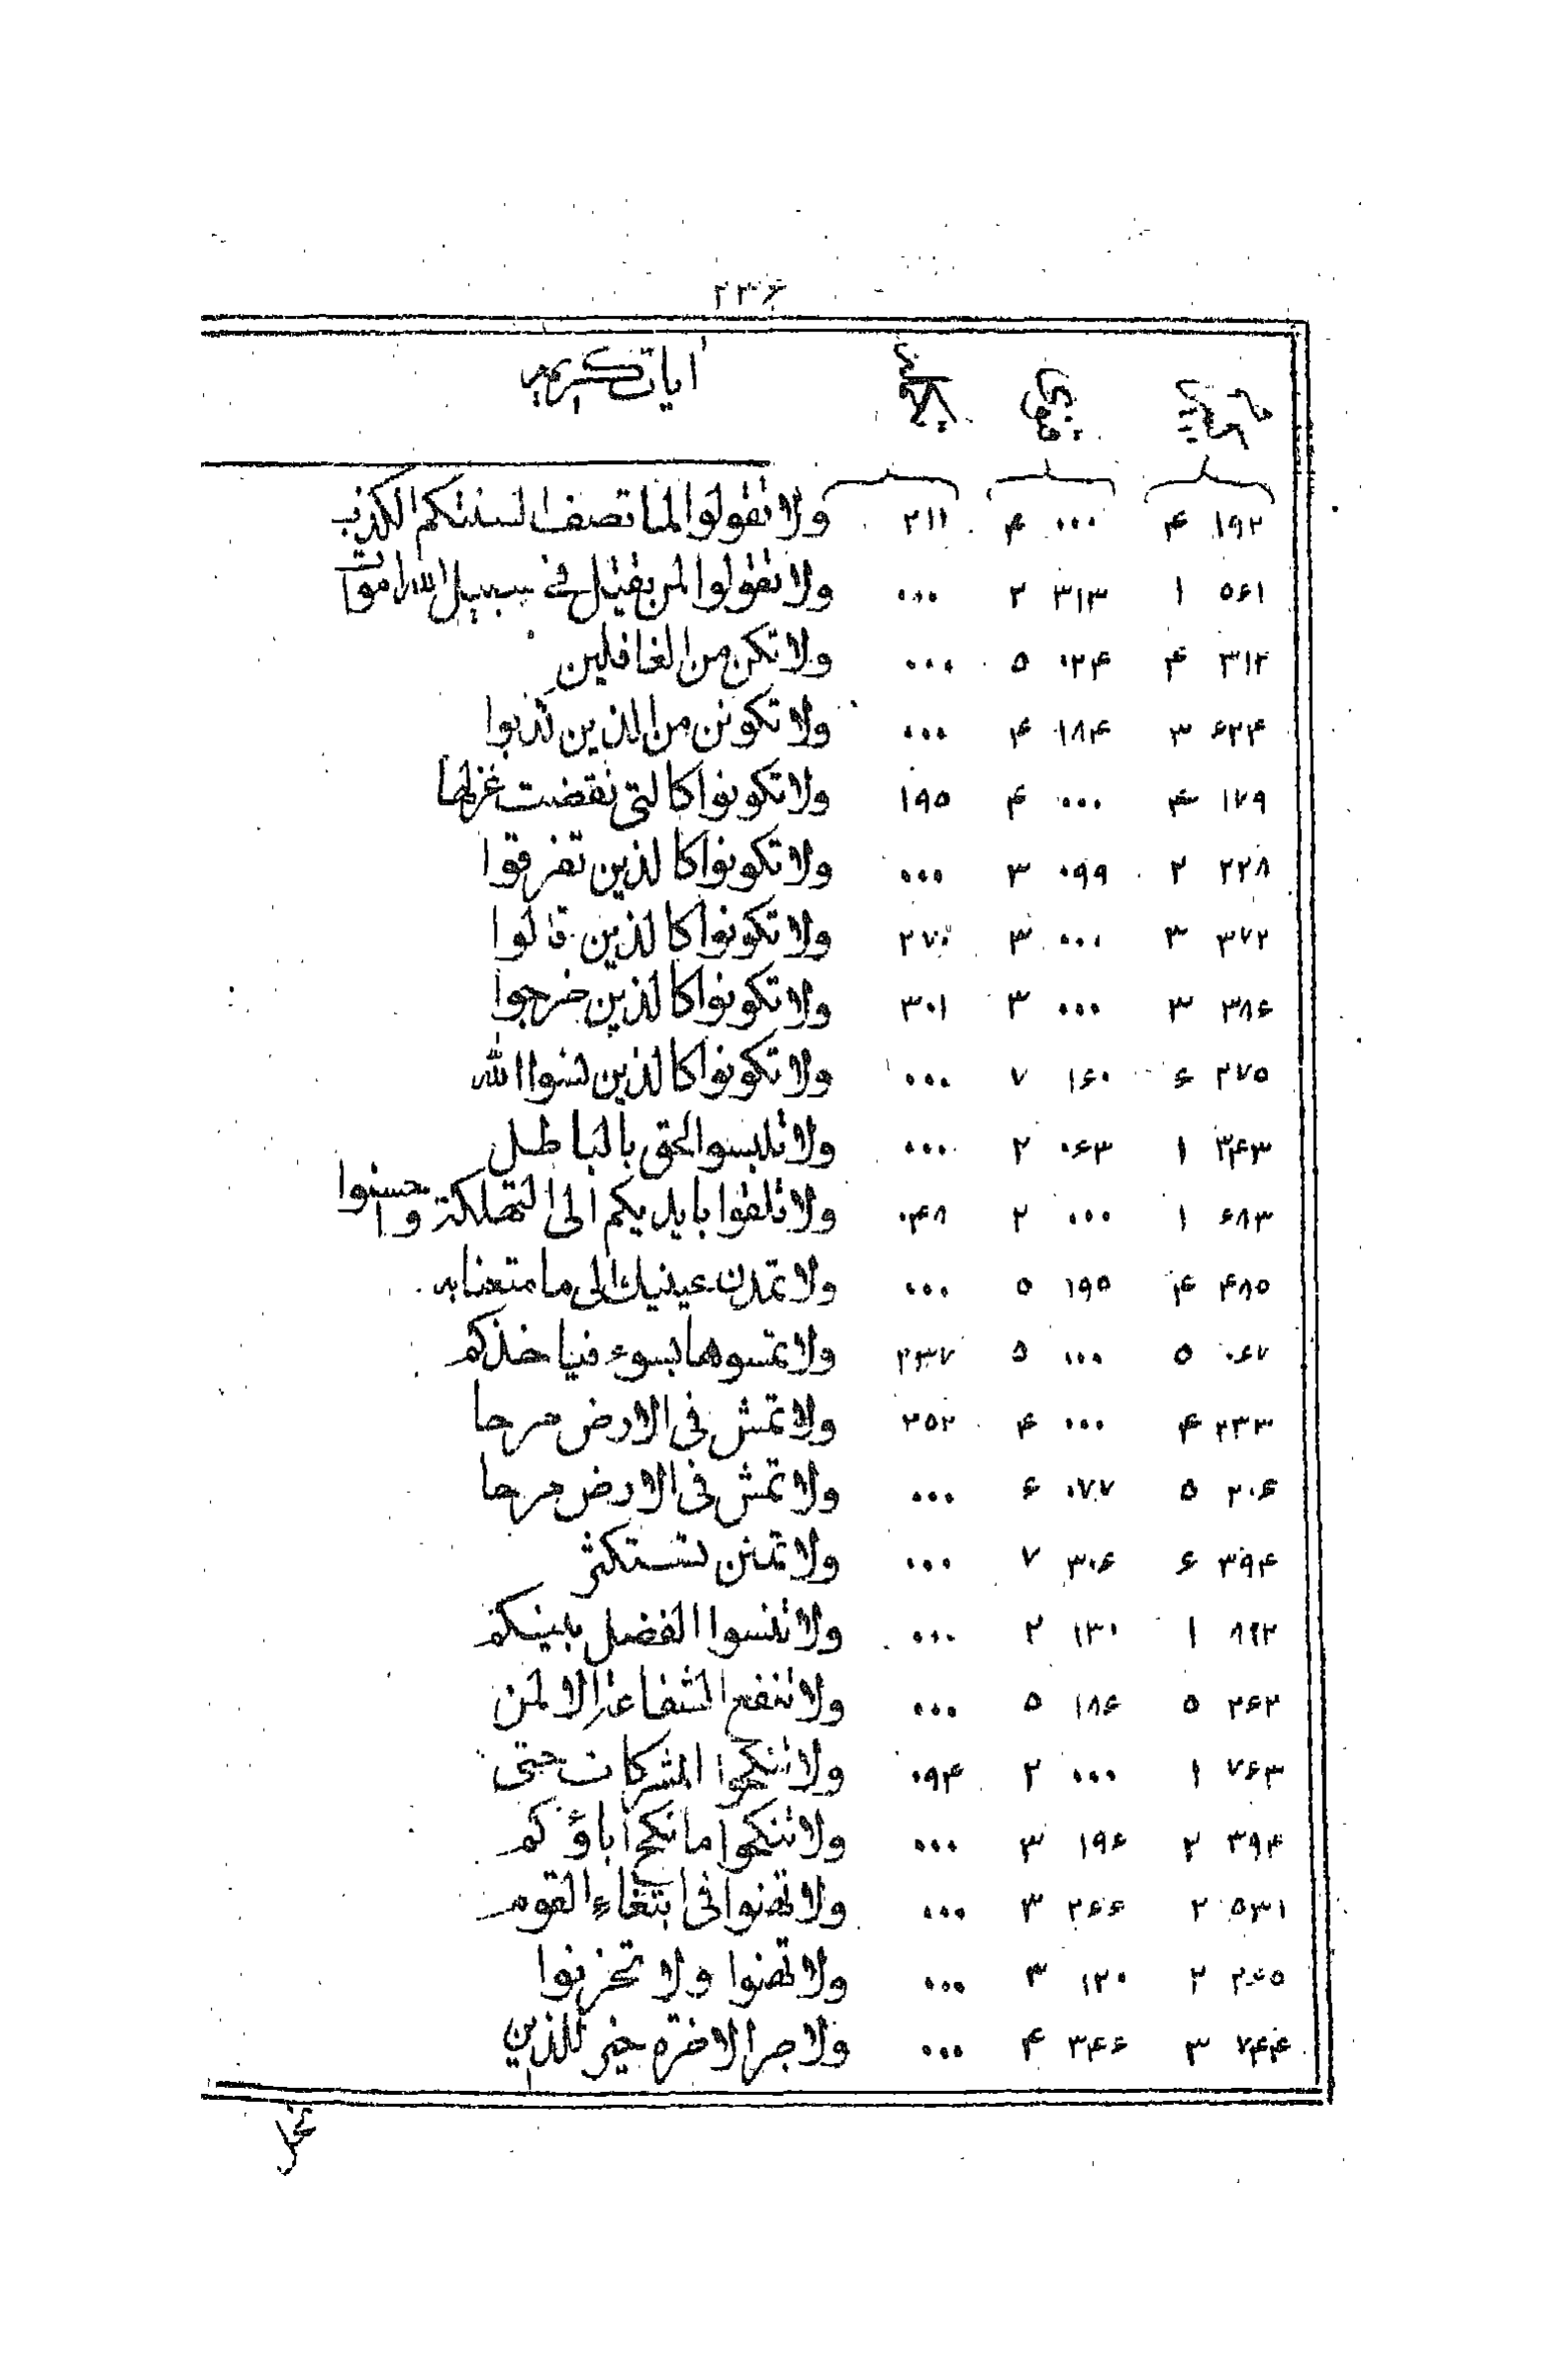 ۲۳۶
آیات کریمه
۱۹۲ ۴ ۰۰۰ ۴ ۲۱۱ ولا تقولوا لما تصف السنتکم الکذب
۵۶۱ ۱ ۳۱۳ ۲ ۰۰۰ ولا تقولوا لمن یقتل فی سبیل الله اموات
۳۱۲ ۴ ۰۲۴ ۵ ۰۰۰ ولا تکن من الغافلین
۶۲۴ ۳ ۱۸۴ ۴ ۰۰۰ ولا تکونن من الذین کذبوا
۱۷۹ ۴ ۰۰۰ ۴ ۱۹۵ ولا تکونوا کالتی نقضت غزلها
۲۲۸ ۲ ۰۹۹ ۳ ۰۰۰ ولا تکونوا کالذین تفرقوا
۳۷۲ ۳ ۰۰۰ ۳ ۲۷۰ ولا تکونوا کالذین قالوا
۳۸۶ ۳ ۰۰۰ ۳ ۳۰۱ ولا تکونوا کالذین خرجوا
۲۷۵ ۶ ۱۶۰ ۷ ۰۰۰ ولا تکونوا کالذین نسوا الله
۳۴۳ ۱ ۰۶۳ ۲ ۰۰۰ ولا تلبسوا الحق بالباطل
۶۸۳ ۱ ۰۰۰ ۲ ۰۴۸ ولا تلقوا بایدیکم الی التهلکة واحسنوا
۴۸۵ ۴ ۱۹۵ ۵ ۰۰۰ ولا تمدن عینیك الی ما متعنا به
۰۶۷ ۵ ۰۰۰ ۵ ۲۳۷ ولا تمسوها بسوء فیاخذکم
۲۳۳ ۴ ۰۰۰ ۴ ۲۵۲ ولا تمش فی الارض مرحا
۲۰۶ ۵ ۰۷۷ ۶ ۰۰۰ ولا تمش فی الارض مرحا
۳۹۴ ۶ ۳۰۶ ۷ ۰۰۰ ولا تمنن تستکثر
۸۲۳ ۱ ۱۳۰ ۲ ۰۰۰ ولا تنسوا الفضل بینکم
۲۶۲ ۵ ۱۸۶ ۵ ۰۰۰ ولا تنفع الشفاعة الا لمن
۷۶۳ ۱ ۰۰۰ ۲ ۰۹۴ ولا تنکحوا المشرکات حتی
۳۹۴ ۲ ۱۹۶ ۳ ۰۰۰ ولا تنکحوا ما نکح اباؤکم
۵۳۱ ۲ ۲۶۶ ۳ ۰۰۰ ولا تهنوا فی ابتغاء القوم
۲۶۵ ۲ ۱۲۰ ۳ ۰۰۰ ولا تهنوا ولا تحزنوا
۷۴۴ ۳ ۳۴۶ ۴ ۰۰۰ ولاجر الاخرة خیر للذین